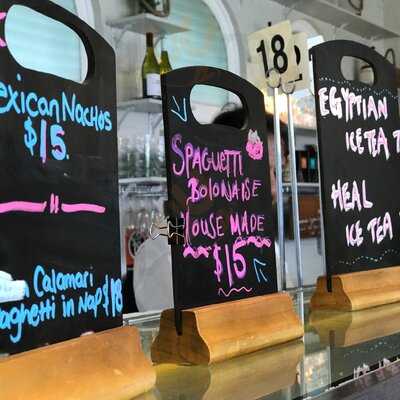 exican Nachos
$15
Calamari
paghetti in Nap $18
SPAGHETTI
BOLONAISE
HOUSE MADE
$15
18
EGYPTIAN
ICE TEA T
HEAL
ICE TEA